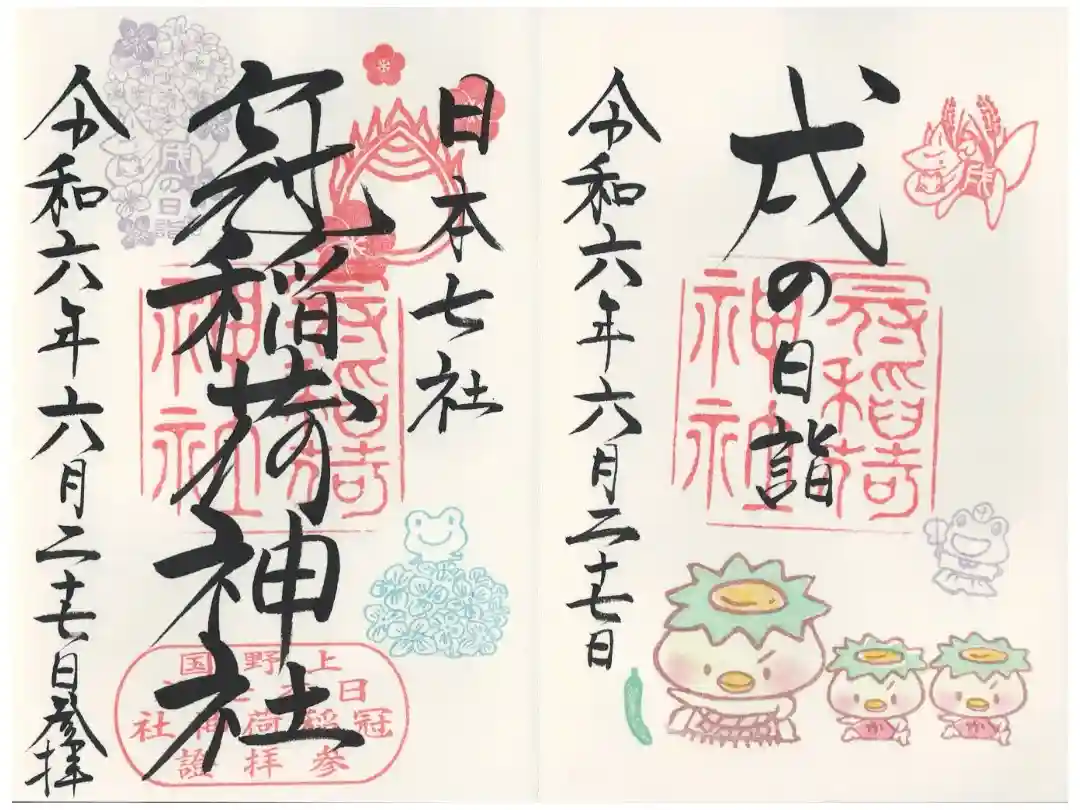 戌の日詣
冠稲荷神社
戌
令和六年六月二十七日
日本七社
冠稲荷神社
冠稲荷神社
戌の日詣
上野国
日冠稲荷神社
参拝證
令和六年六月二十七日参拝